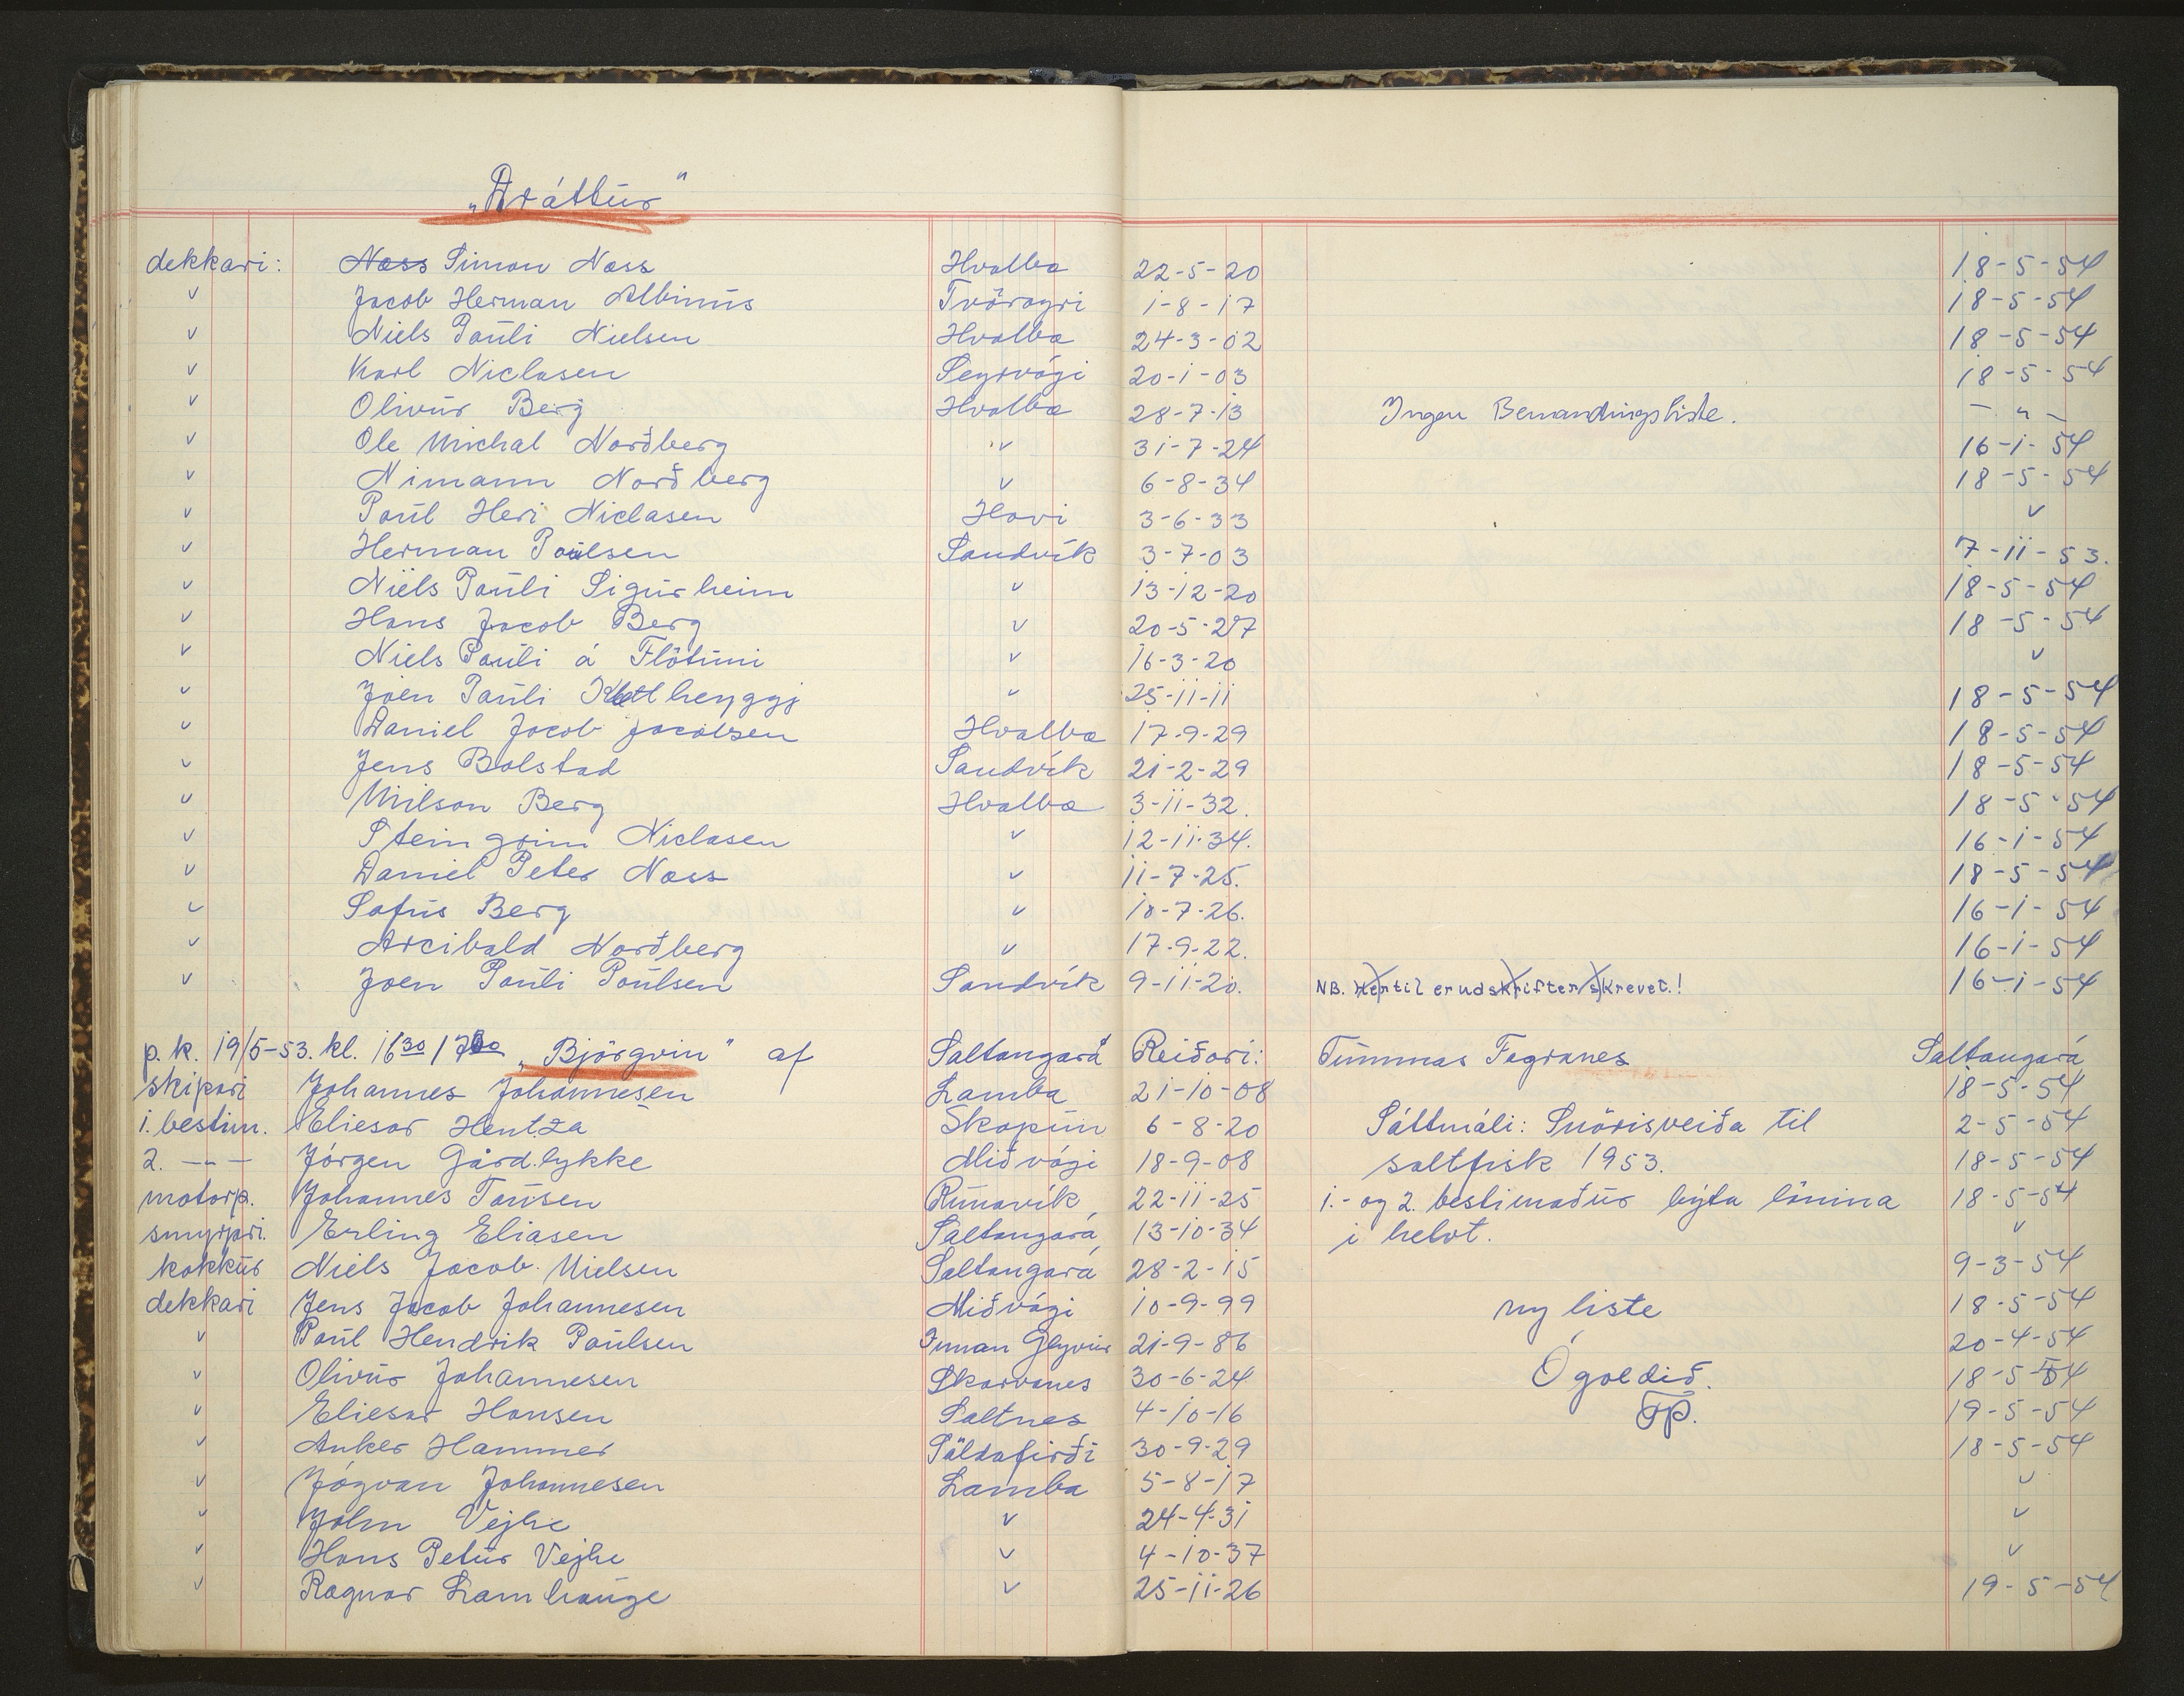 „Dráttur"
dekkari: Næss Simon Næss Hvalba 22-5-20 18-5-54
v Jacob Herman Albinus Tvöroyri 1-8-17 18-5-54
v Niels Pauli Nielsen Hvalba 24-3-02 18-5-54
v Karl Niclasen Seyrvági 20-1-03 18-5-54
v Olivur Berg Hvalba 28-7-13 Ingen Bemandingsliste. — " —
v Ole Michal Norðberg " 31-7-24 16-1-54
v Nimann Norðberg v 6-8-34 18-5-54
v Poul Heri Niclasen Hovi 3-6-33 v
v Herman Poulsen Sandvík 3-7-03 7-11-53.
v Niels Pauli Sigurheim v 13-12-20 18-5-54
v Hans Jacob Berg v 20-5-27 18-5-54
v Niels Pauli á Flötuni v 16-3-20 v
v Joen Pauli v 25-11-11 18-5-54
v Daniel Jacob Jacobsen Hvalba 17-9-29 18-5-54
v Jens Bolstad Sandvík 21-2-29 18-5-54
v Milson Berg Hvalba 3-11-32. 18-5-54
v Steingrim Niclasen v 12-11-34. 16-1-54
v Daniel Peter Næss v 11-7-25. 18-5-54
v Sofus Berg v 10-7-26. 16-1-54
v Arcibald Norðberg v 17-9-22. 16-1-54
v Joen Pauli Poulsen Sandvík 9-11-20. NB. Hertil er udskrifter skrevet.! 16-1-54
p.k. 19/5-53. kl. 16 30 / 17 00 „Björgvin" af Saltangará Reiðari: Tummas Fagranes Saltangará
skipari Johannes Johannesen Lamba 21-10-08 18-5-54
1. bestim. Eliesar Hentza Skopun 6-8-20 Sáttmáli: Snörisveiða til 2-5-54
2. —"— Jörgen Gårdlykke Miðvági 18-9-08 saltfisk 1953. 18-5-54
motorp. Johannes Tausen Runavík, 22-11-25 1.- og 2. bestimaður býta lönina 18-5-54
smyrjari. Erling Eliasen Saltangará 13-10-34 i helvt. v
kokkur Niels Jacob Nielsen Saltangará 28-2-15 9-3-54
dekkari Jens Jacob Johannesen Miðvági 10-9-99 ny liste 18-5-54
v Poul Hendrik Poulsen Innan Glyvur 21-9-86 20-4-54
v Olivur Johannesen Skarvanes 30-6-24 Ógoldið. 18-5-54
v Eliesar Hansen Saltnes 4-10-16 TP. 19-5-54
v Anker Hammer Söldafirði 30-9-29 18-5-54
v Jógvan Johannesen Lamba 5-8-17 v
v John Vejhe v 24-4-31 v
v Hans Petur Vejhe v 4-10-37 v
v Ragnar Lamhauge v 25-11-26 19-5-54